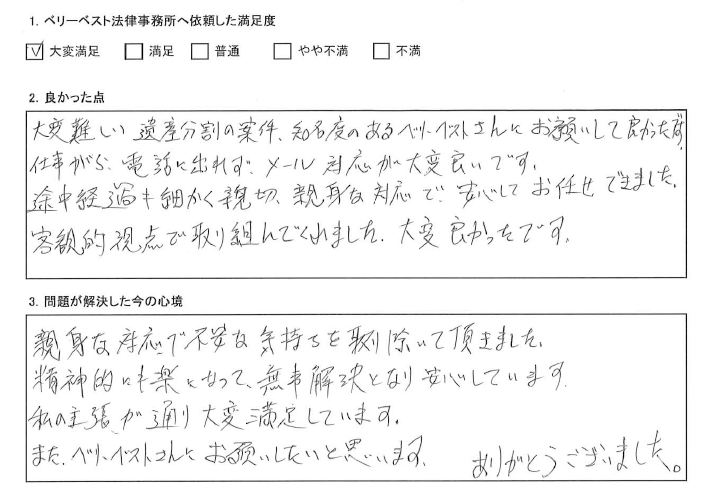 1. ベリーベスト法律事務所へ依頼した満足度
☑ 大変満足 □ 満足 □ 普通 □ やや不満 □ 不満
2. 良かった点
大変難しい遺産分割の案件、知名度のあるベリーベストさんにお願いして良かったです。
仕事がら、電話に出れず、メール対応が大変良いです。
途中経過も細かく親切、親身な対応で、安心してお任せできました。
客観的視点で取り組んでくれました。大変良かったです。
3. 問題が解決した今の心境
親身な対応で不安な気持ちを取り除いて頂きました。
精神的にも楽になって、無事解決となり安心しています。
私の主張が通り大変満足しています。
また、ベリーベストさんにお願いしたいと思います。 ありがとうございました。